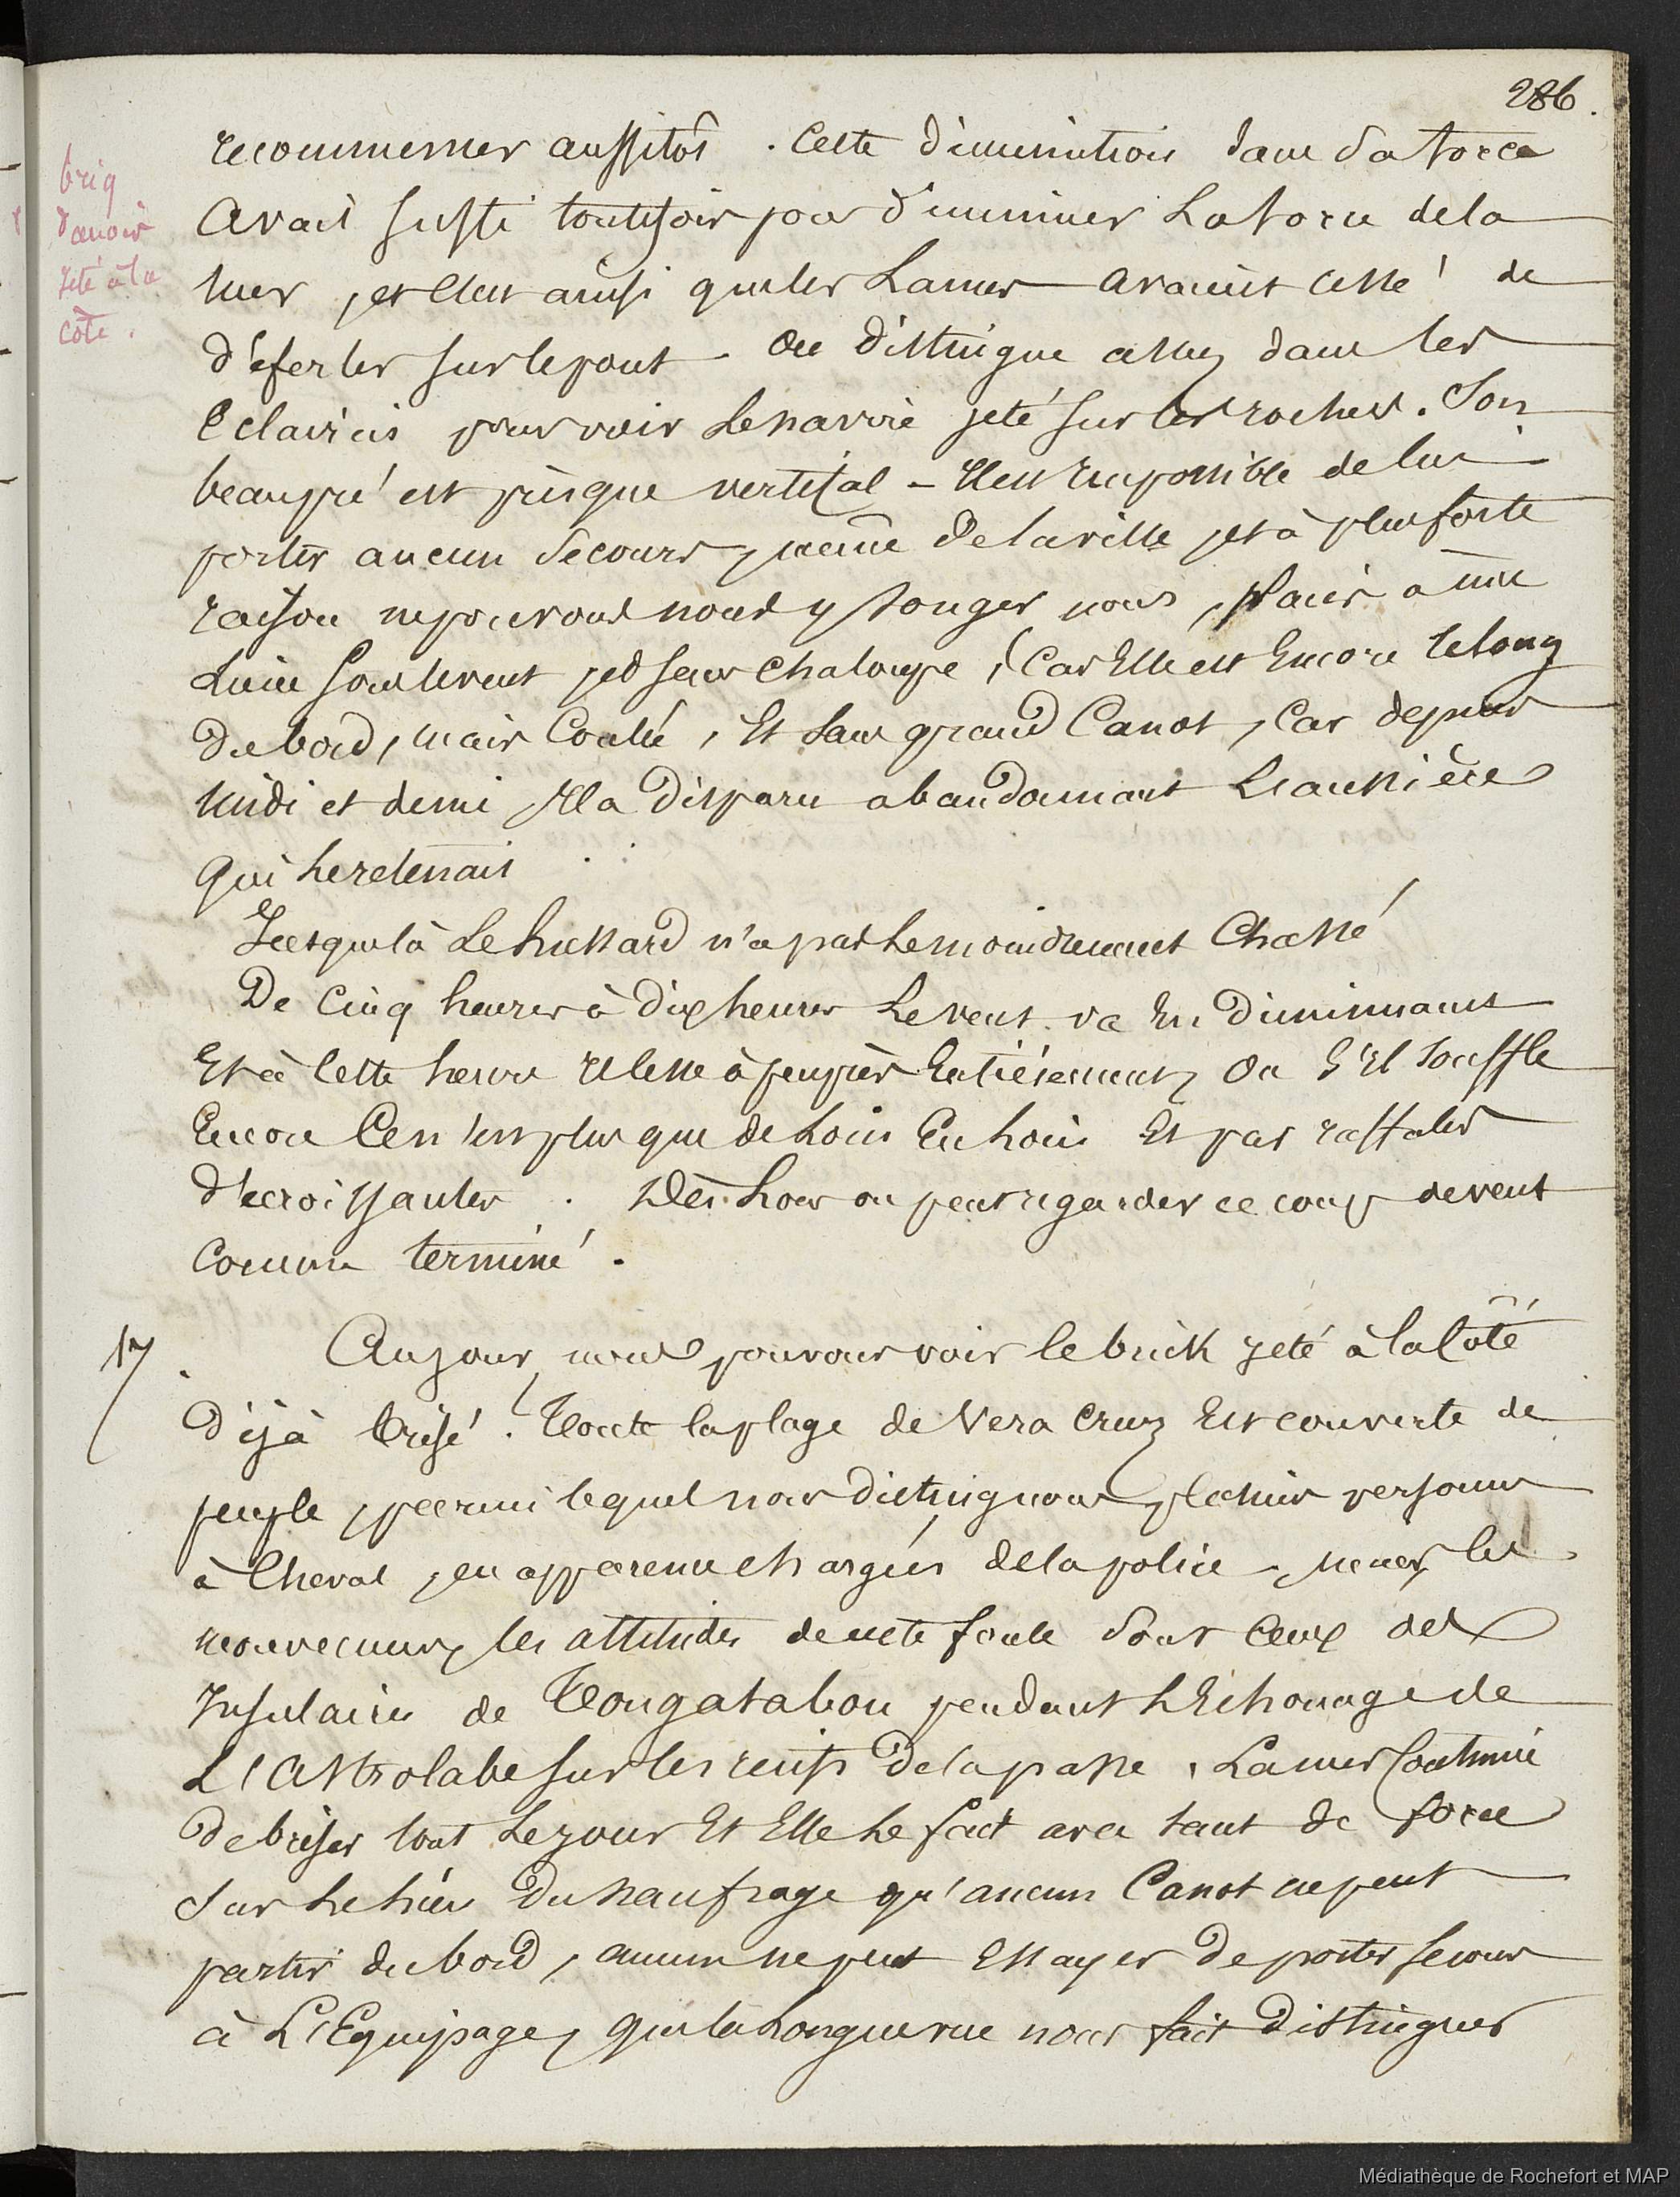 286.
brig
danois
jeté à la
côte.
recommencer aussitôt. Cette diminution dans sa force
Avait suffi toutefois pour diminuer La force de la
mer, et c'est ainsi que les Lames avaient cessé de
déferler sur le pont. On distingue assez dans les
Eclaircis pour voir Le navire jeté sur les roches. Son
beaupré est presque vertical – Il est Impossible de lui
porter aucun Secours, même de la ville, et à plus forte
raison ne pouvons nous y songer nous, placés à un
mille sous le vent, et sans chaloupe, (Car Elle est Encore le long
du bord, mais Coulée, Et sans grand Canot, Car depuis
midi et demi Il a disparu abandonnant
qui Le retenait
Jusque là Le hussard n'a pas Le moindrement Chassé
De Cinq heures à dix heures Le vent va En diminuant
Et à Cette heure Il cesse à peu près Entièrement, ou S'Il souffle
Encore Ce n'est plus que de Loin En Loin Et par raffales
décroissantes. Dès Lors on peut regarder ce coup de vent
comme terminé.
17. Au jour, nous pouvons voir le brick jeté à la Côte
Déjà brisé. Toute la plage de Vera Cruz Est couverte de
peuple, parmi lequel nous distinguons plusieurs personnes
à Cheval, en apparence chargées de la police, les
mouvemens, les attitudes de cette foule Sont Ceux des
Insulaires de Tongatabou pendant L'Echouage de
L'Astrolabe sur les récifs de la passe, La mer Continue
de briser tout Le jour Et Elle Le fait avec tant de force
Sur Le lieu du naufrage qu'aucun Canot ne peut
partir du bord, aucun ne peut Essayer de porter secours
à L'Equipage, que la Longue vue nous fait distinguer
Médiathèque de Rochefort et MAP